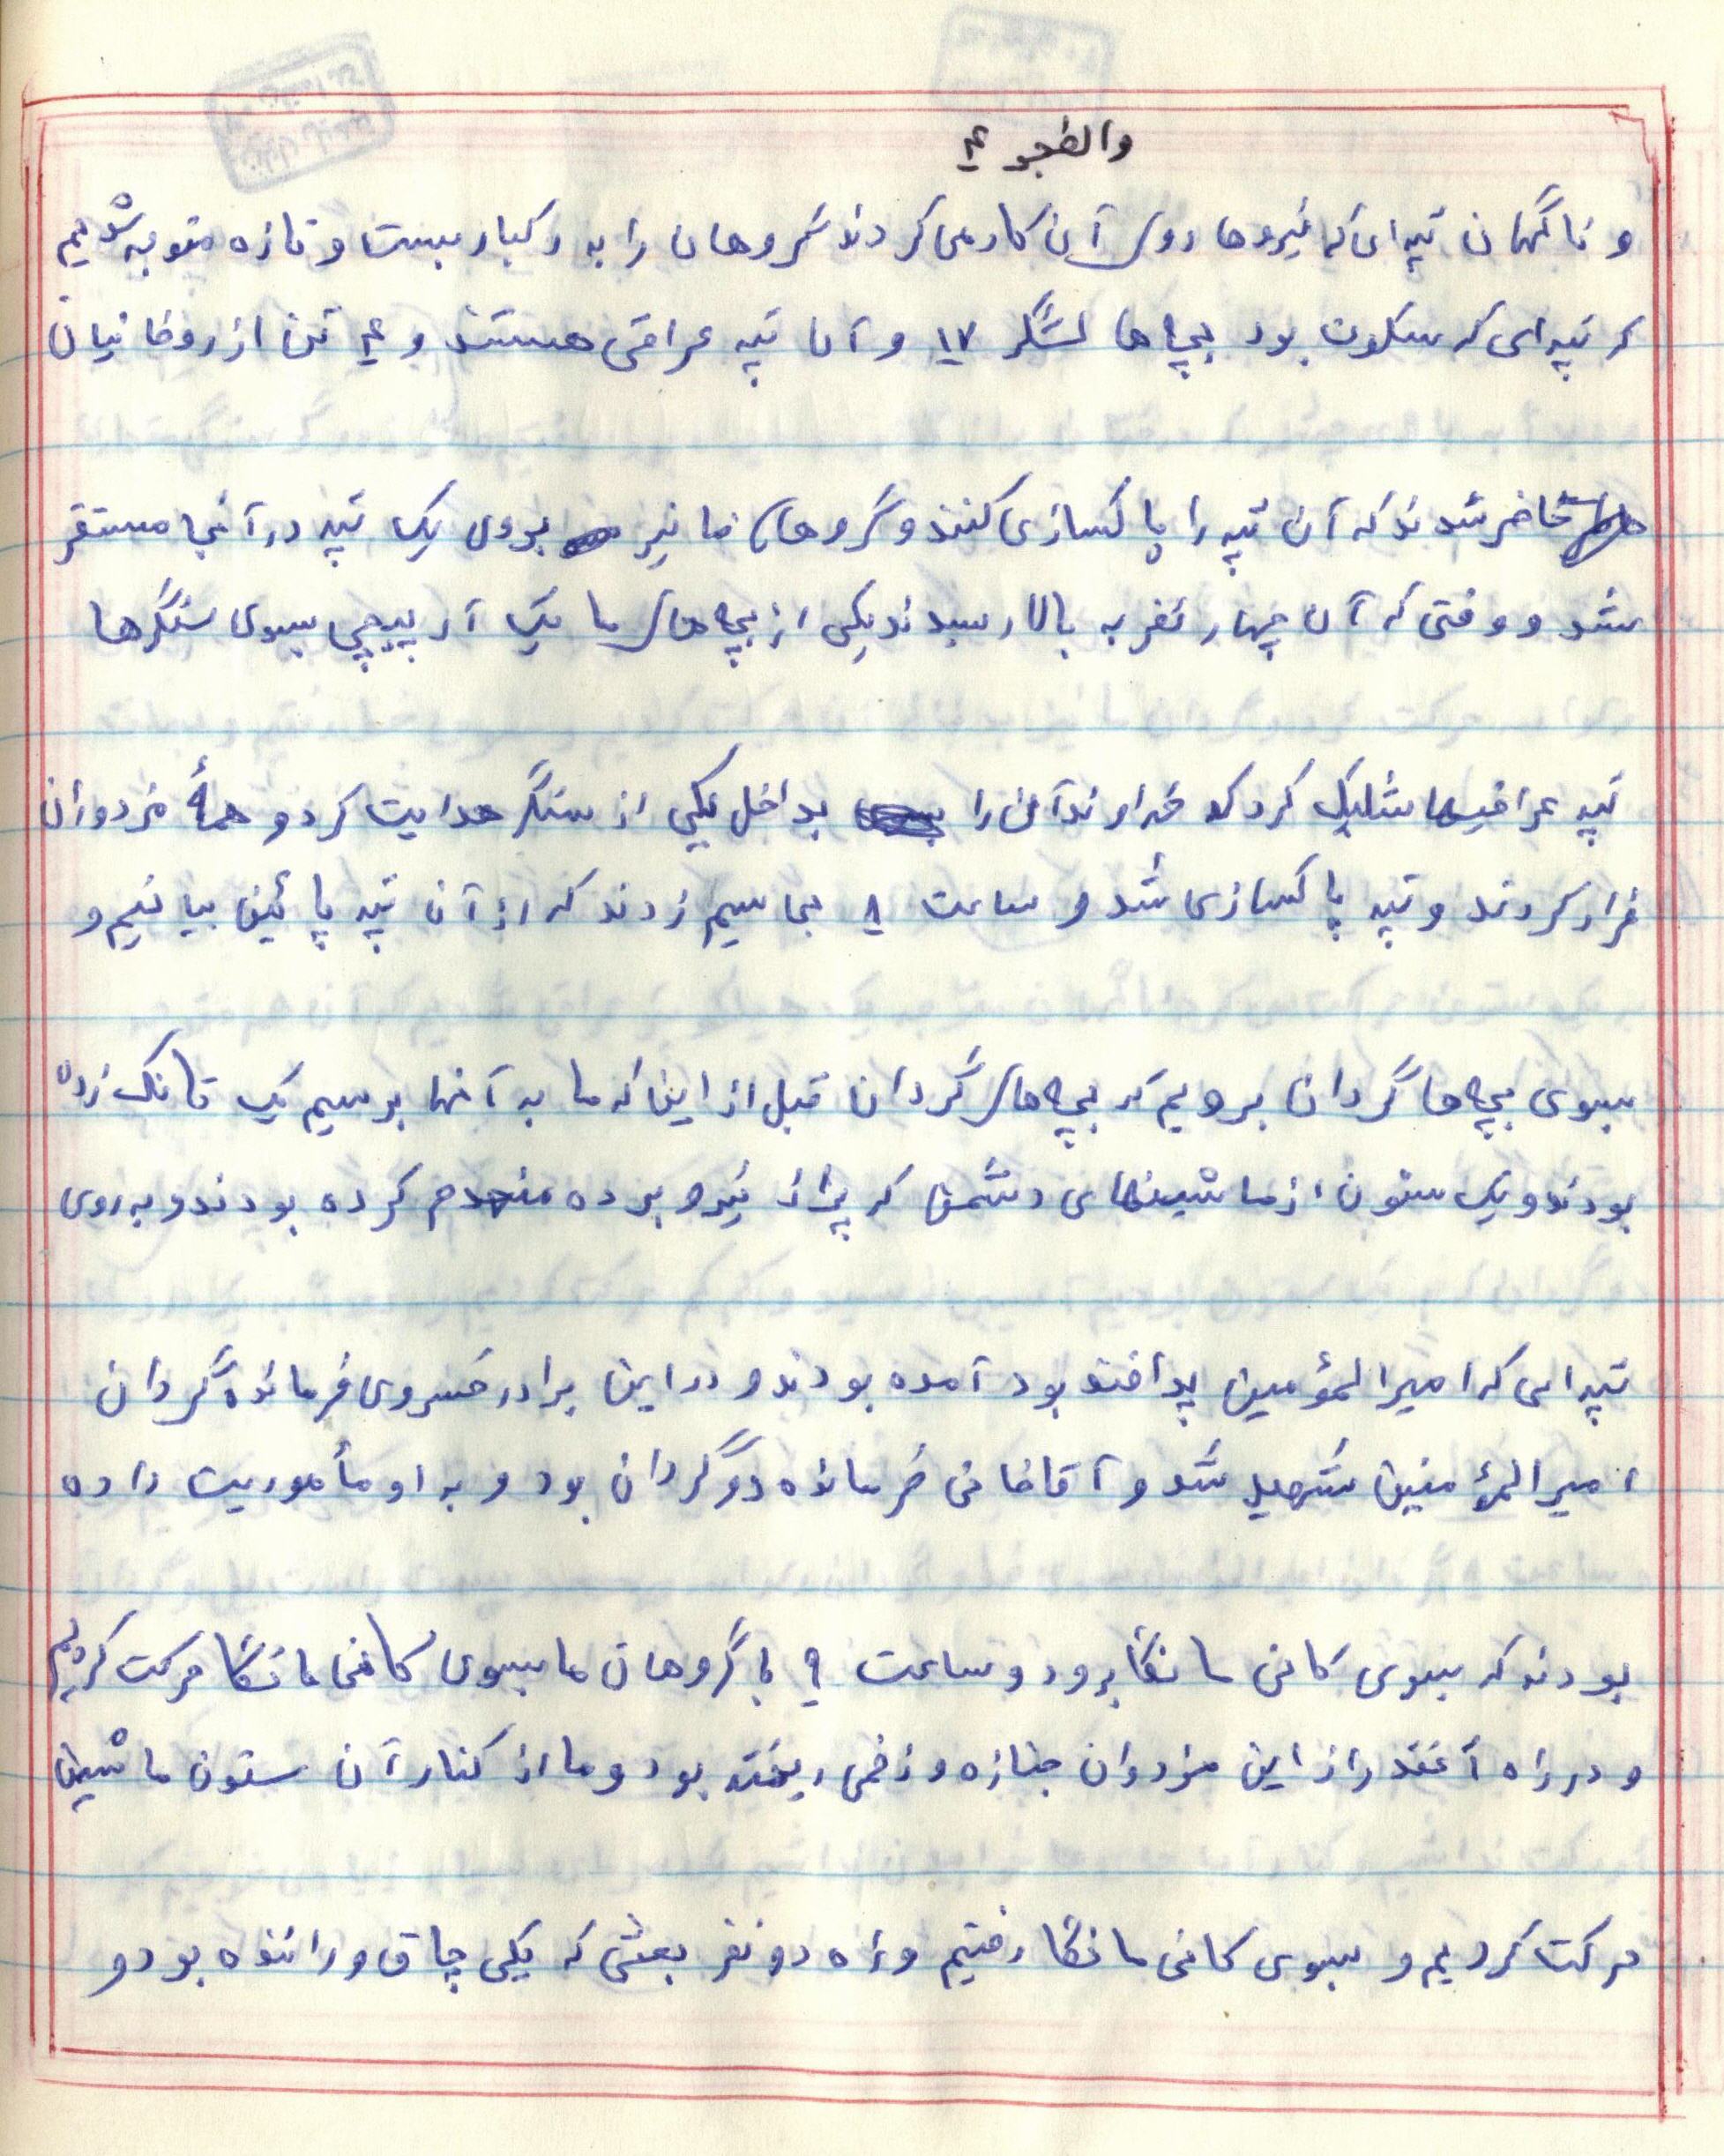 والفجر ۴
و ناگهان تپه‌ای که نیروها روی آن کار می‌کردند گروهان را به رگبار بست و تازه متوجه شدیم
که تپه‌ای که سکوت بود بچه‌ها لشگر ۱۷ و آن تپه عراقی هستند و ۴ تن از روحانیان
حاضر شدند که آن تپه را پاکسازی کنند و گروهان ما نیز بروی یک تپه در آنجا مستقر
شد و وقتی که آن چهار نفر به بالا رسیدند یکی از بچه‌های ما یک آرپیجی بسوی سنگرها
تپه عراقیها شلیک کرد که خداوند آن را بداخل یکی از سنگر هدایت کرد و همهٔ مزدوران
فرار کردند و تپه پاکسازی شد و ساعت ۸ بما سیم زدند که از آن تپه پائین بیائیم و
بسوی بچه‌ها گردان برویم که بچه‌های گردان قبل از این که ما به آنها برسیم یک تانک زده
بودند و یک ستون از ماشینهای دشمن که پر از نیرو بوده منهدم کرده بودند و به روی
تپه‌ای که امیرالمؤمین پدآفند بود آمده بودند و در این برادر خسروی فرمانده گردان
امیرالمؤمنین شهید شد و آقاخانی فرمانده دو گردان بود و به او مأموریت داده
بودند که بسوی کانی مانگا برود و ساعت ۹ با گروهان ما بسوی کانی مانگا حرکت کردیم
و در راه آنقدر از این مزدوران جنازه و زخمی ریخته بود و ما از کنار آن ستون ماشین
حرکت کردیم و بسوی کانی مانگا رفتیم و راه دو نفر بعثی که یکی چاق و راننده بود و